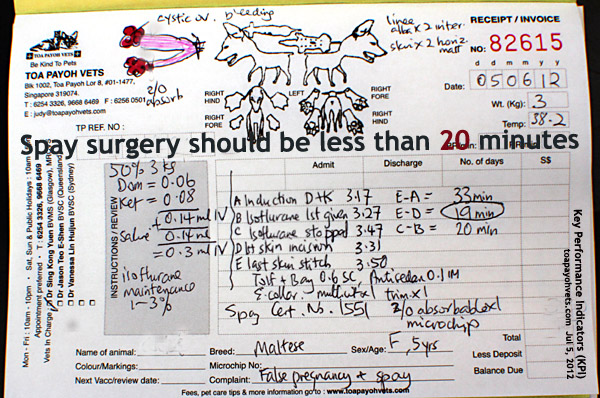 cystic ov.
bleeding
linea
alba x 2 interr.
skin x 2 horiz
matt
RECEIPT / INVOICE
NO: 82615
TOA PAYOH VETS
Be Kind To Pets
TOA PAYOH VETS
Blk 1002, Toa Payoh Lor 8, #01-1477,
Singapore 319074.
T: 6254 3326, 9668 6469 F: 6256 0501
E: judy@toapayohvets.com
2/0
absorb
RIGHT HIND
LEFT HIND
RIGHT FORE
LEFT
RIGHT
LEFT FORE
d d m m y y
Date: 050612
Wt. (Kg): 3
Temp: 38.2
TP REF. NO :
Spay surgery should be less than 20 minutes
Admit
Discharge
No. of days
S$
INSTRUCTIONS / REVIEW
50% 3 kg
Dom = 0.06
Ket = 0.08
0.14 ml IV
Saline 0.14 ml
= 0.3 ml IV
isoflurane
maintenance
1-3%
A Induction D+K 3.17 E-A = 33 min
B Isoflurane 1st given 3.27 E-D = 19 min
C Isoflurane stopped 3.47 C-B = 20 min
D 1st skin incision 3.31
E last skin stitch 3.50
Tolf + Bay 0.6 SC, Antisedan 0.1 IM
E-collar
Spay Cert. No. 1551
2/0 absorbable x 1
microchip
Mon - Fri : 10am - 10pm • Sat, Sun & Public Holidays : 10am
Appointment preferred • T: 6254 3326, 9668 6469
Vets In Charge
Dr Sing Kong Yuen BVMS (Glasgow), MRCVS
Dr Jason Teo E-Shen BVSC (Queensland)
Dr Vanessa Lin Huijun BVSC (Sydney)
Key Performance Indicators (KPI)
toapayohvets.com Jul 5, 2012
Name of animal:
Breed: Maltese
Sex/Age: F, 5yrs
Total
Colour/Markings:
Microchip No:
Less Deposit
Next Vacc/review date:
Complaint: False pregnancy + spay
Balance Due
Fees, pet care tips & more information goto : www.toapayohvets.com